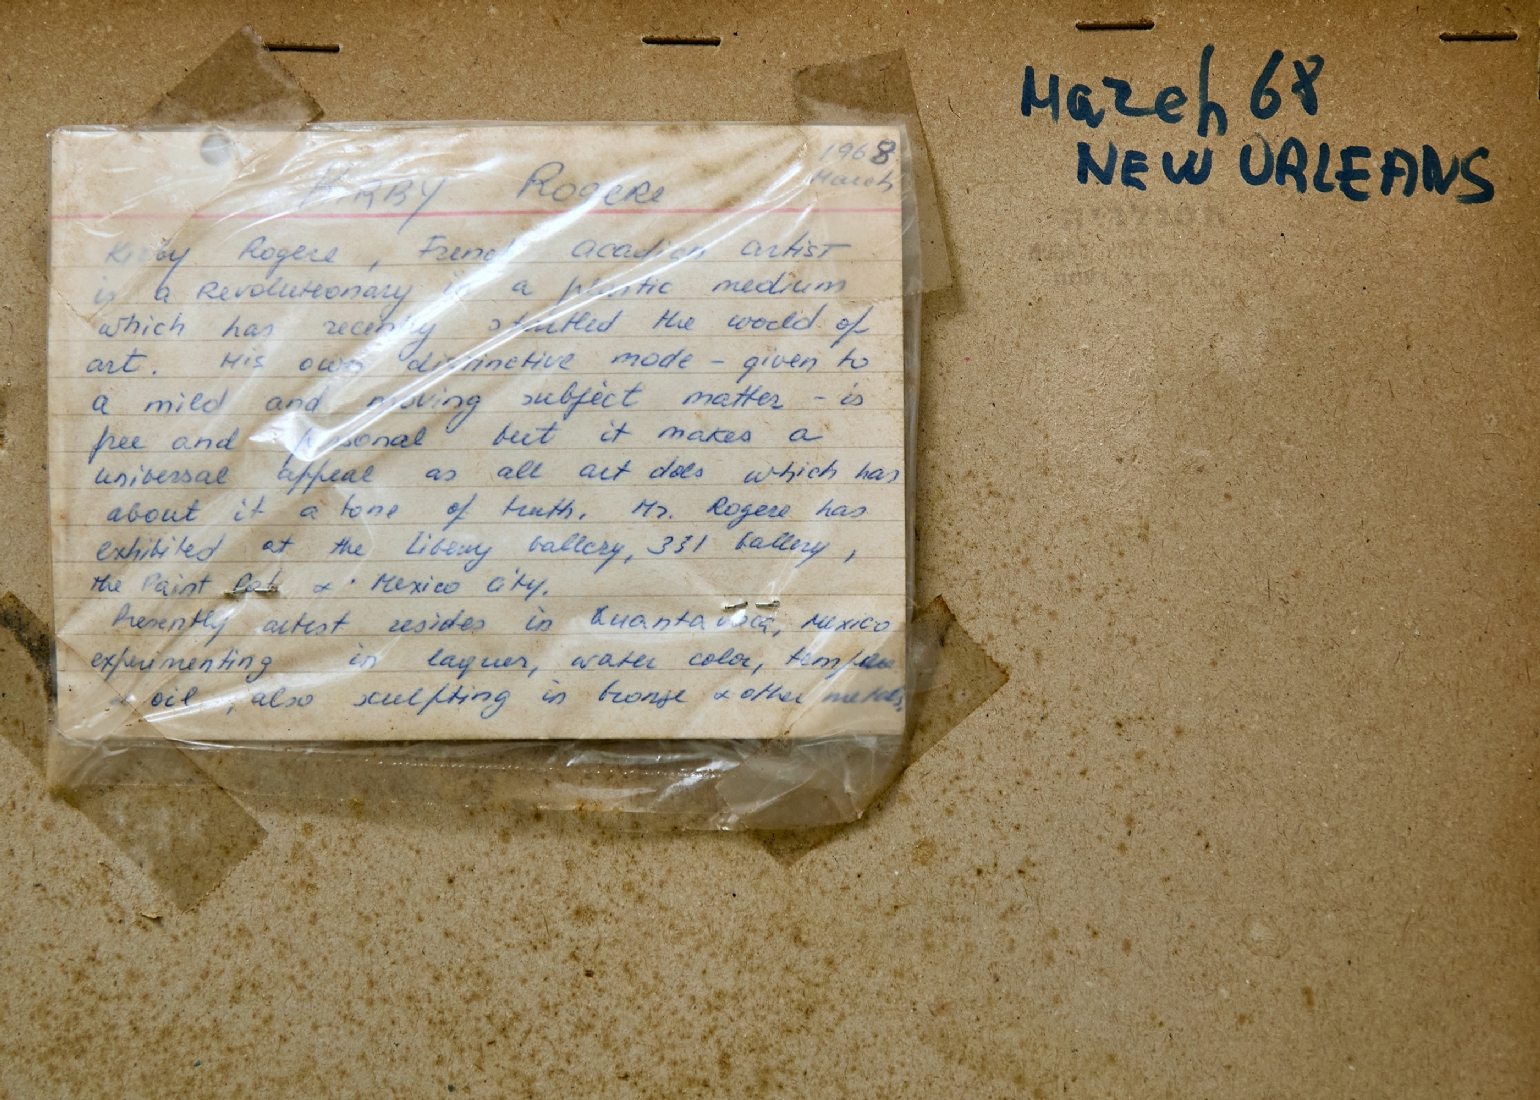 March 68
NEW ORLEANS
1968
March
KIRBY Rogere
Kirby Rogere, French acadian artist
is a Revolutionary in a plastic medium
which has recently startled the world of
art. His own distinctive mode - given to
a mild and moving subject matter - is
free and personal but it makes a
universal appeal as all art does which has
about it a tone of truth. Mr. Rogere has
exhibited at the Liberty Gallery, 331 Gallery,
the Paint & Mexico City.
Presently artist resides in Mexico
experimenting in laquer, water color, tempera
& oil, also sculpting in bronze & other metals.